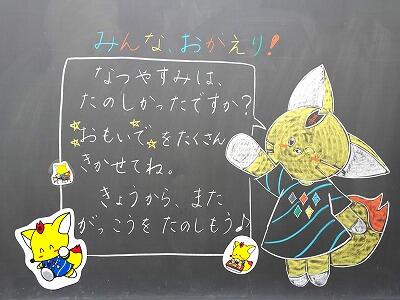 みんな、おかえり!
なつやすみは、
たのしかったですか?
おもいでをたくさん
きかせてね。
きょうから、また
がっこうを たのしもう♪